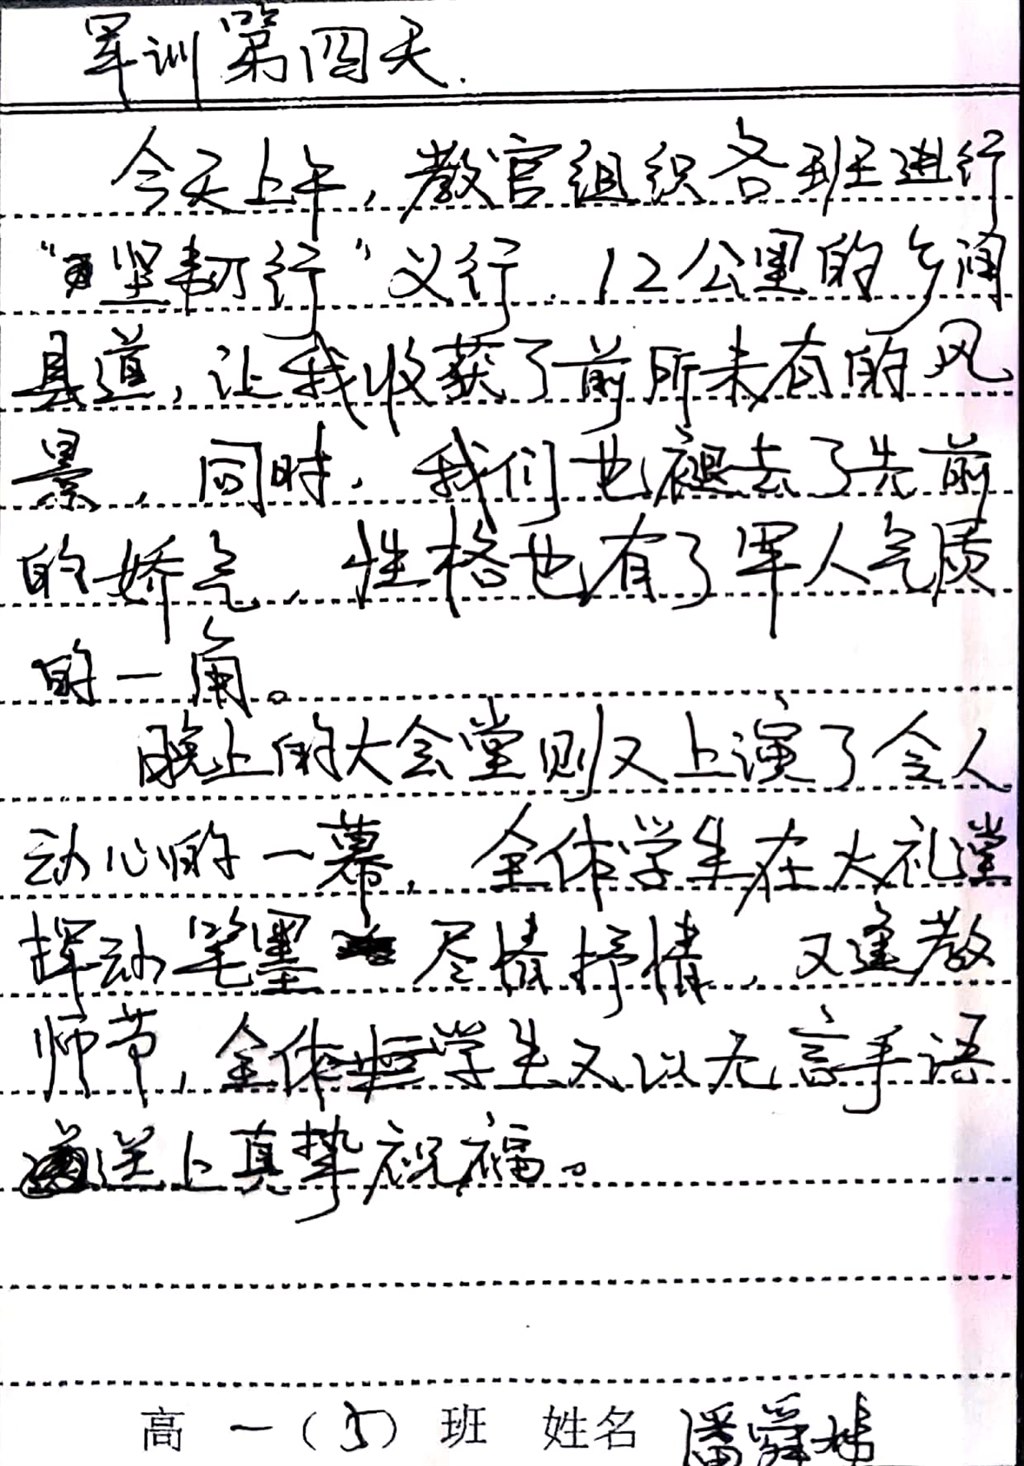 军训第四天.
今天上午，教官组织各班进行
“坚韧行”义行．12公里的乡间
县道，让我收获了前所未有的风
景，同时，我们也褪去了先前
的娇气，性格也有了军人气质
的一角。
晚上的大会堂则又上演了令人
动心的一幕，全体学生在大礼堂
挥动笔墨 尽情抒情，又逢教
师节，全体学生又以无言手语
送上真挚祝福。
高一（5）班 姓名 潘舜